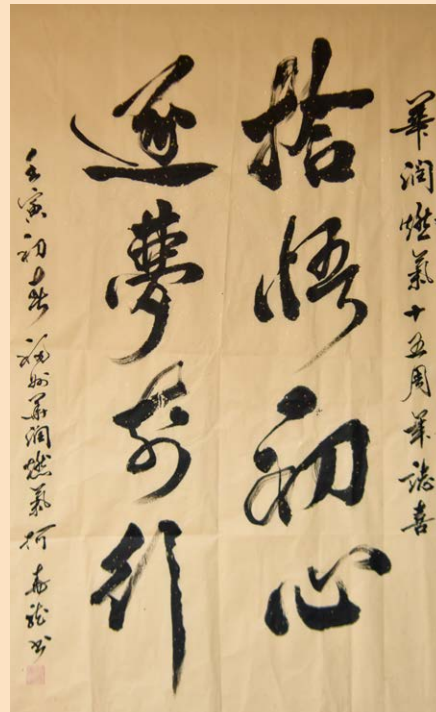 華润燃氣十五周年誌喜
拾悟初心
逐夢前行
壬寅初春 福州華润燃氣 柯寿龍书